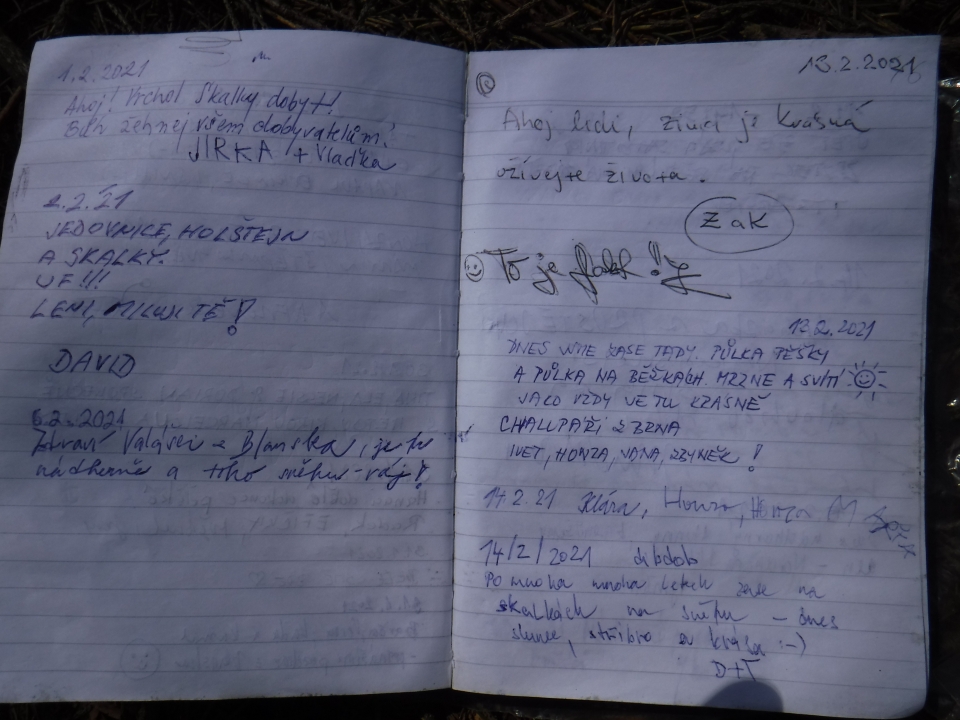 1.2.2021
Ahoj! Vrchol Skalky dobyt!
Bůh žehnej všem dobyvatelům!
JIRKA + Vlaďka
2.2.21
JEDOVNICE, HOLŠTEJN
A SKALKY.
UF!!!
LENI, MILUJI TĚ!
DAVID
6.2.2021
Zdraví Valášci z Blanska, je tu
nádherně a toho sněhu - ráj!
13.2.2021
Ahoj lidi, život je krásná
užívejte života.
Zak
To je fakt!!
13.2.2021
DNES JSME ZASE TADY. PŮLKA PĚŠKY
A PŮLKA NA BĚŽKÁCH. MRZNE A SVÍTÍ
JAKO VŽDY JE TU KRÁSNĚ
CHALUPÁŘI Z BRNA
IVET, HONZA, JANA, ZBYNĚK!
14.2.21 Klára, Honza, Honza
14/2/2021 dibdob
Po mnoha mnoha letech zase na
skalkách na sněhu - dnes
slunce, stříbro a krása :-)
D+T